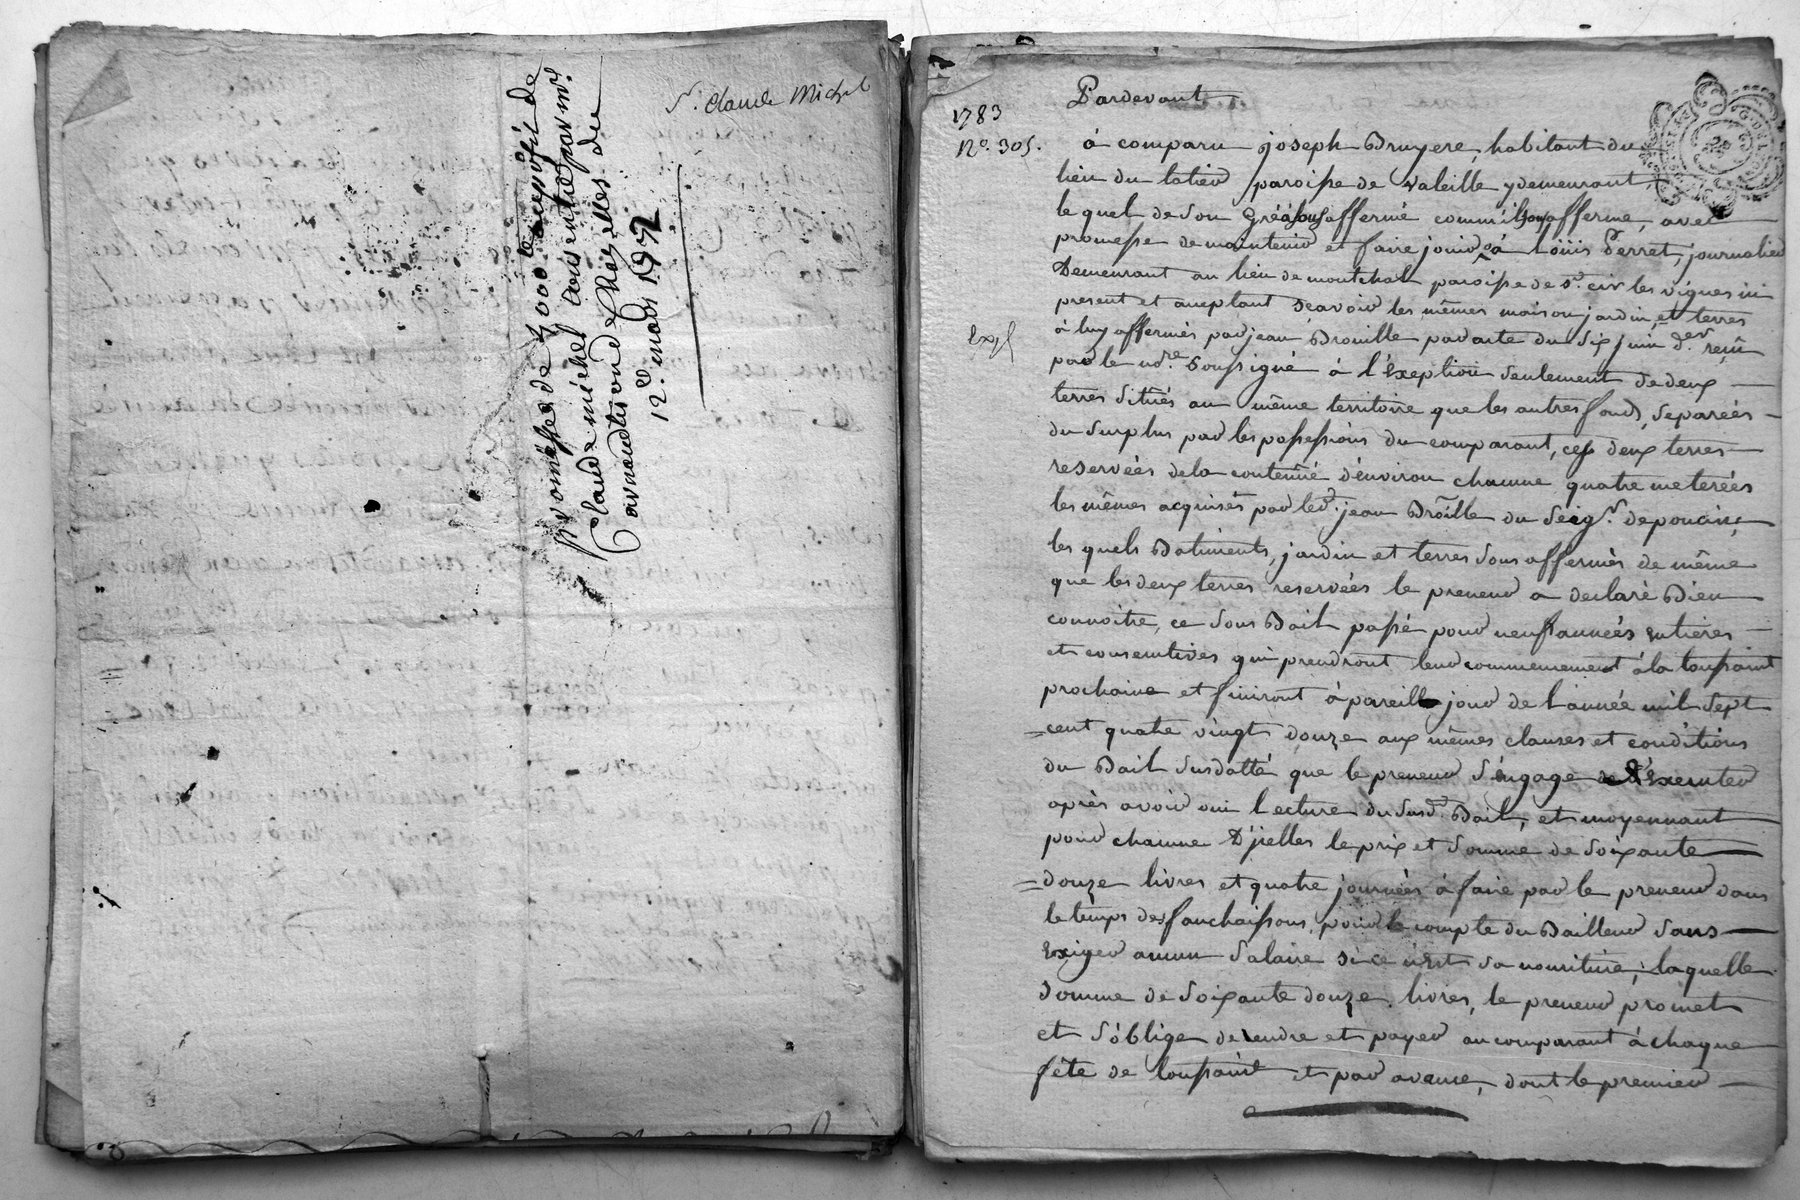 Sr. Claude Michel
promesse de 3000 lt au profit de
Claude michel consentie par mr.
Caronaudtion de Chazelles du
12e. mars 1772
1783
No. 305.
Pardevant
à comparu joseph Bruyere, habitant du
lieu du latier paroisse de valeille y demeurant,
le quel de son gré à sous affermé comm'il sous afferme, avec
promesse de maintenir et faire jouir à Loüis Perret, journalier
Demeurant au lieu de montchal paroisse de st. cir les vignes ici
present et acceptant scavoir les mêmes maison jardin et terres
à luy affermés par jean Brouille par acte du six juin der. reçu
Exp
par le nore. soussigné à l'exeption seulement de deux
terres situés au même territoire que les autres fonds, separeés
du surplus par les possessions du comparant, ces deux terres
reservées de la contenüe d'environ chacune quatre meterées
les mêmes acquises par led. jean Broille du seigr. de poncins,
les quels Batiments, jardin et terres sous affermés de même
que les deux terres reservées le preneur a declaré Bien
connoitre, ce sous Bail passé pour neuf années entieres
et consecutives qui prendront leur commencement à la toussaint
prochaine et finiront à pareille jour de l'année mil sept
=cent quatre vingt douze aux mêmes clauses et conditions
du Bail susdatté que le preneur s'engage d'executer
après avoir oui lecture du susd. Bail, et moyennant
pour chacune D'jcelles le prix et somme de soixante
=douze livres et quatre journées à faire par le preneur dans
le temps des fauchaisons, pour le compte du Bailleur sans
exiger aucun salaire si ce n'est sa nourriture, laquelle
somme de soixante douze livres, le preneur promet
et s'oblige de rendre et payer au comparant à chaque
fête de toussaint et par avance, dont le premier